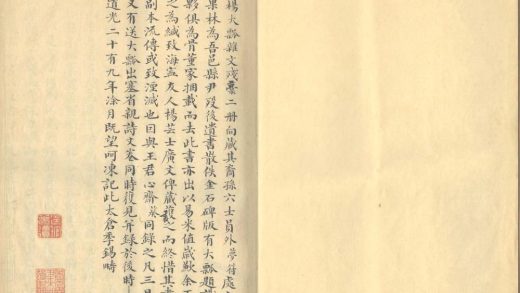 楊大瓢雜文殘藁二冊向藏其裔孫六士員外夢符處
果林為吾邑縣尹歿後遺書散佚金石碑版有大瓢題
夥俱為骨董家捆載而去此書亦出以易米值歲歉余
之為緘致海虞友人楊芸士廣文俾藏之而終惜其
副本流傳或致湮滅也因與王君心齋同錄之凡三
文有送大瓢出塞省親詩文卷同時復見并錄於後時
道光二十有九年涂月既望呵凍記此太倉季錫疇